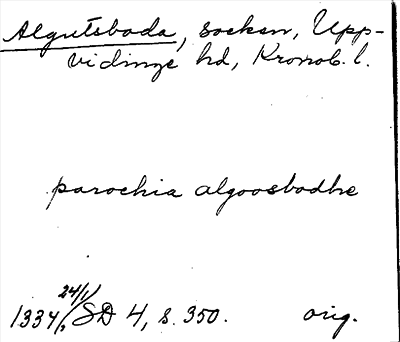 Algutsboda, socken, Upp-
vidinge hd, Kronob. l.
parochia algoosbodhe
1334 24/1, SD 4, s. 350. orig.